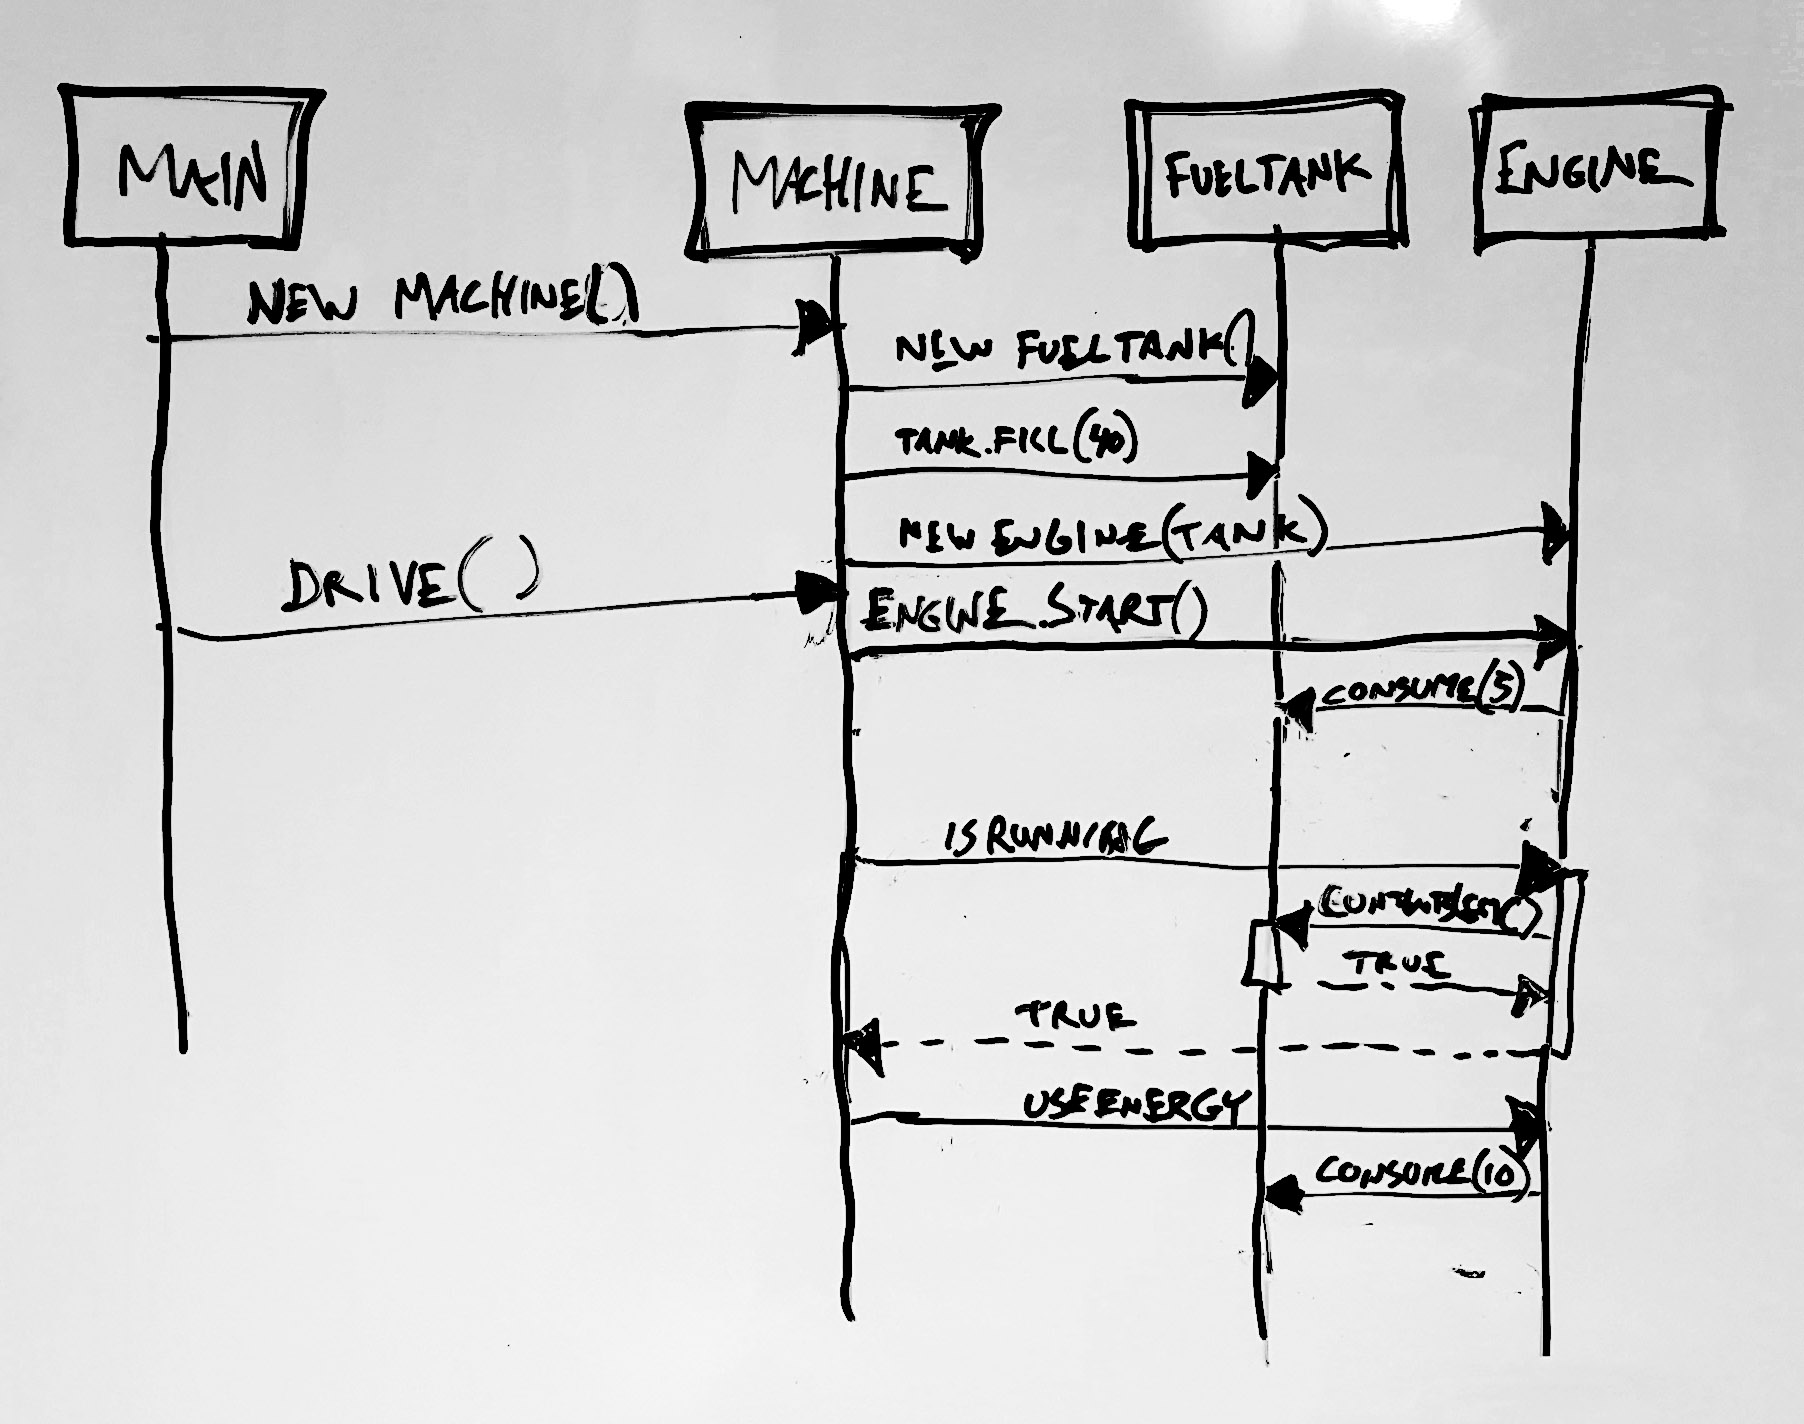 MAIN
MACHINE
FUELTANK
ENGINE
NEW MACHINE()
NEW FUELTANK()
TANK.FILL(40)
NEW ENGINE(TANK)
DRIVE()
ENGINE.START()
CONSUME(5)
ISRUNNING
TRUE
TRUE
USEENERGY
CONSUME(10)